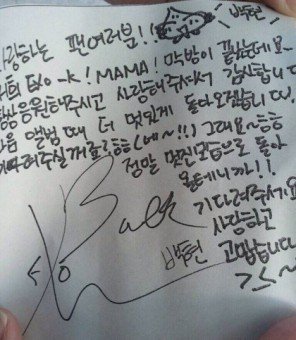 사랑하는 팬여러분!! 백현
저희 EXO-K! MAMA! 막방이 끝났는데요~
항상응원해주시고 사랑해주셔서 감사합니다
다음 앨범 때 더 멋있게 돌아오겠습니다.
기다려주실꺼죠? (네~!!) 그래요~
정말 멋진모습으로 돌아
올테니까!!
기다려주세요
사랑하고
고맙습니다
Baek
백현